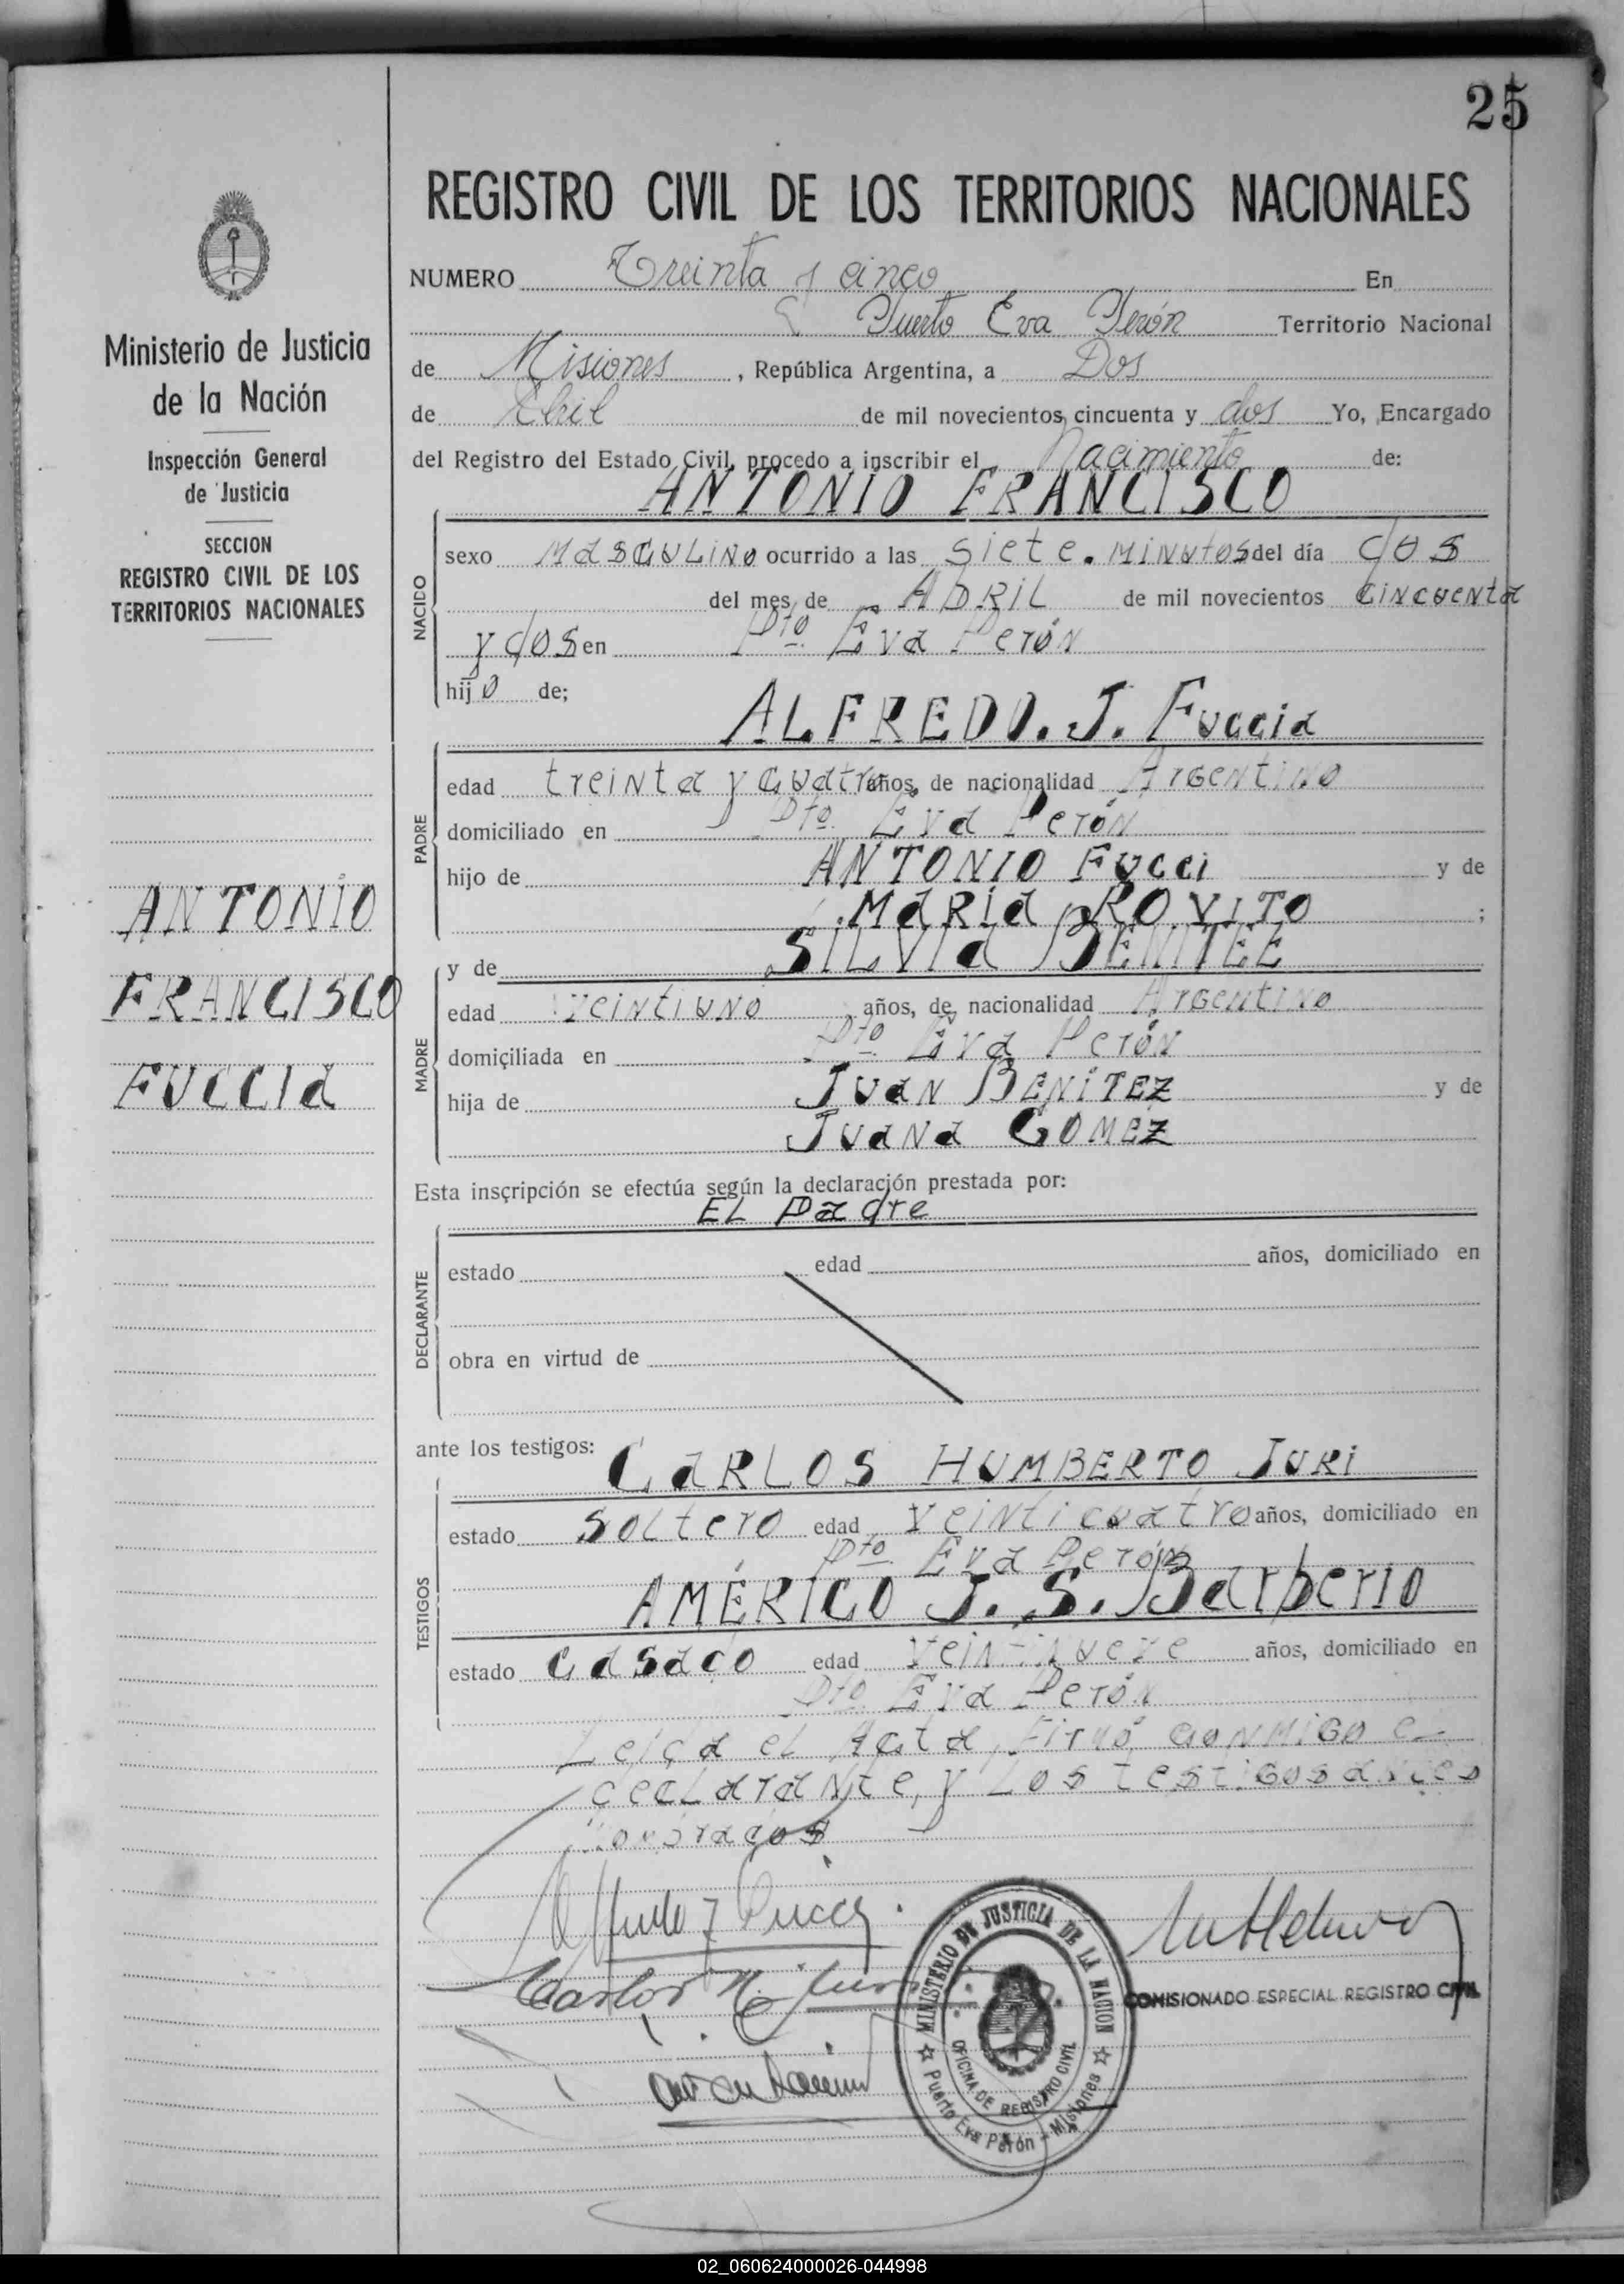 25
REGISTRO CIVIL DE LOS TERRITORIOS NACIONALES
Ministerio de Justicia
de la Nación
Inspección General
de Justicia
SECCION
REGISTRO CIVIL DE LOS
TERRITORIOS NACIONALES
ANTONIO
FRANCISCO
FUCCIA
NUMERO Treinta y cinco En
Puerto Eva Perón Territorio Nacional
de Misiones, República Argentina, a Dos
de Abril de mil novecientos cincuenta y dos Yo, Encargado
del Registro del Estado Civil, procedo a inscribir el Nacimiento de:
ANTONIO FRANCISCO
NACIDO
sexo MASCULINO ocurrido a las siete. MINUTOS del día dos
del mes de ABRIL de mil novecientos CINCUENTA
y dos en Pto Eva Perón
hijo de;
ALFREDO. J. Fuccia
PADRE
edad treinta y cuatro años, de nacionalidad Argentino
domiciliado en Pto. Eva Perón
hijo de ANTONIO Fucci y de
MARIA ROVITO ;
y de SILVIA BENITEZ
MADRE
edad veintiuno años, de nacionalidad Argentino
domiciliada en Pto. Eva Perón
hija de JUAN BENITEZ y de
JUANA GOMEZ
Esta inscripción se efectúa según la declaración prestada por:
EL Padre
DECLARANTE
estado edad años, domiciliado en
obra en virtud de
ante los testigos:
CARLOS HUMBERTO JURI
TESTIGOS
estado soltero edad veinticuatro años, domiciliado en
Pto Eva Perón
AMÉRICO J. S. Barberio
estado casado edad veintinueve años, domiciliado en
Pto Eva Perón
Leida el Acta, Firmó conmigo el
declarante, y los testigos antes
nombrados
Alfredo J Fuccia
Carlos H. Juri
MINISTERIO DE JUSTICIA DE LA NACION
OFICINA DE REGISTRO CIVIL
Puerto Eva Perón - Misiones
COMISIONADO ESPECIAL REGISTRO CIVIL
02_060624000026-044998